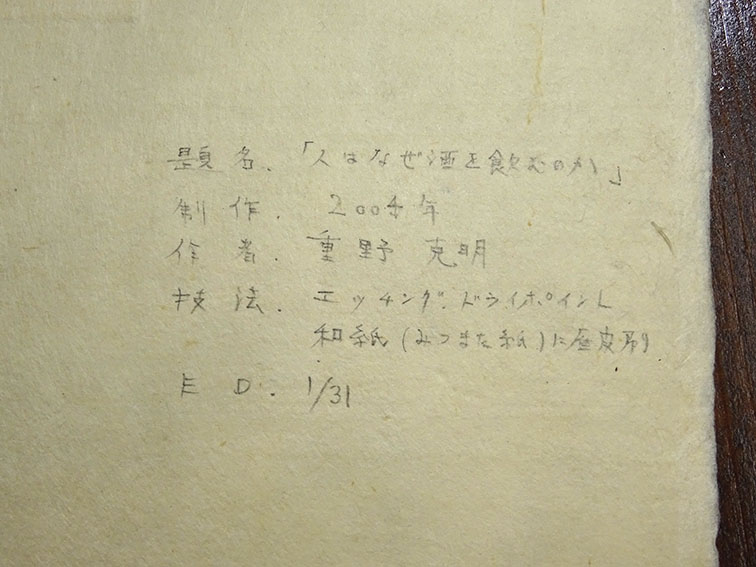 題名.「人はなぜ酒を飲むのか」
制作. 2004年
作者. 重野克明
技法. エッチング、ドライポイント
和紙(みつまた紙)に 刷り
ED. 1/31